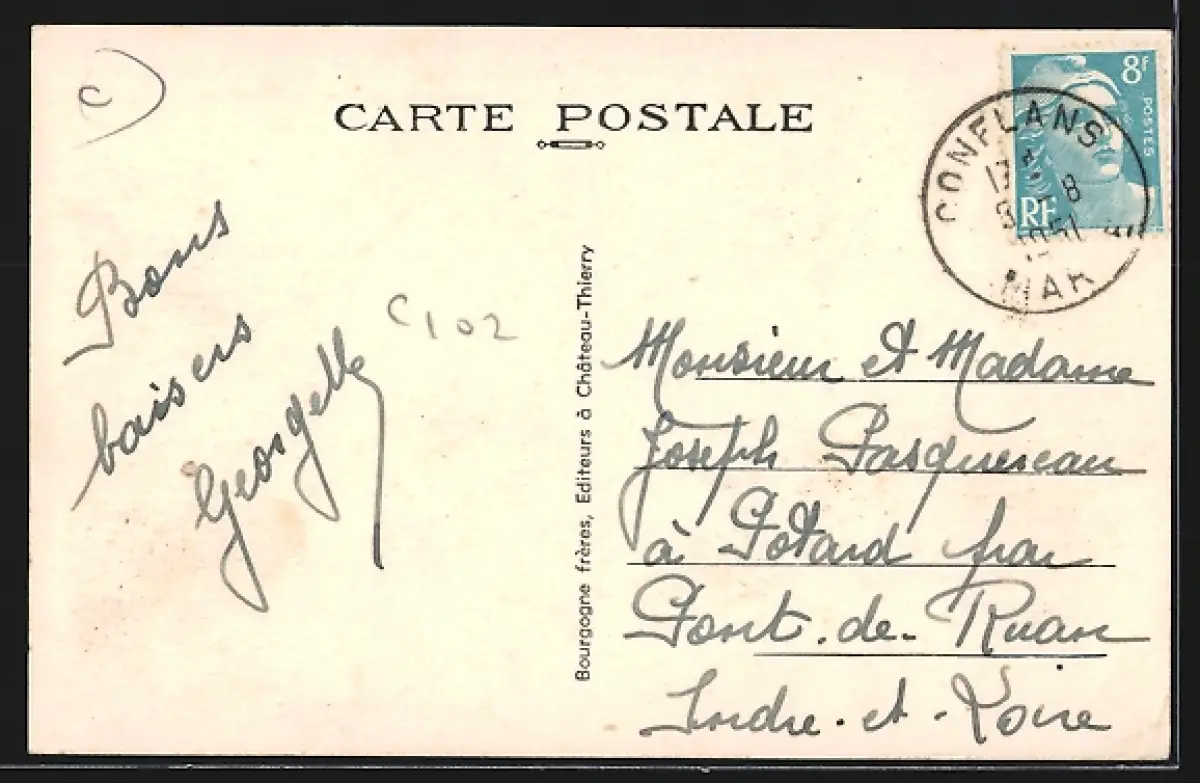 C
CARTE POSTALE
8F
POSTES
RF
CONFLANS
8
1951
MAR
Bons
baisers
Georgette
C 102
Bourgogne frères, Editeurs à Château-Thierry
Monsieur et Madame
Joseph Pasquereau
à Potard par
Pont-de-Ruan
Indre-et-Loire